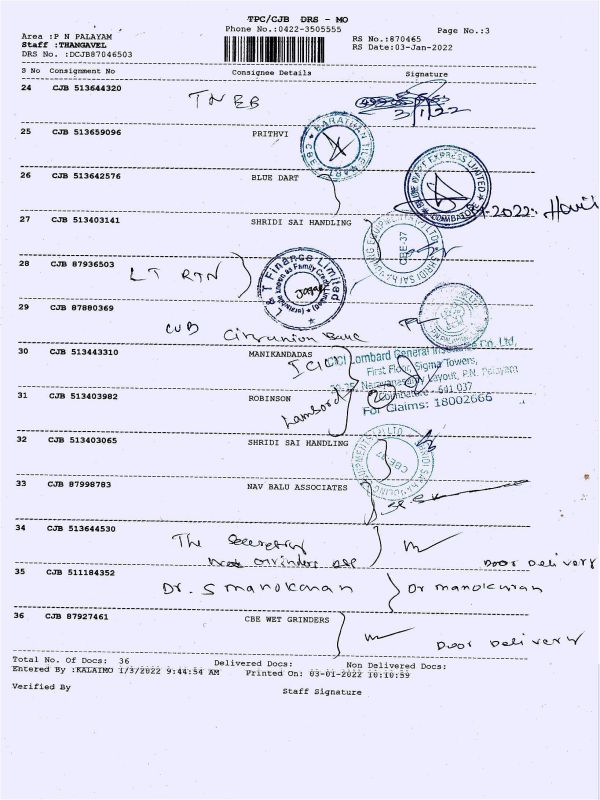 TPC/CJB DRS - MO
Phone No.:0422-3505555
Page No.:3
Area :P N PALAYAM
Staff :THANGAVEL
DRS No. :DCJB87046503
RS No.:870465
RS Date:03-Jan-2022
S No Consignment No Consignee Details Signature
24 CJB 513644320 TNEB
3/1/22
25 CJB 513659096 PRITHVI
BARATHAN TILE MART
26 CJB 513642576 BLUE DART
BLUE DART EXPRESS LIMITED
COIMBATORE
2022.
27 CJB 513403141 SHRIDI SAI HANDLING
CBE-37
28 CJB 87936503 LT RTN
L & T Finance Limited
29 CJB 87880369
CUB City union Bank
30 CJB 513443310 MANIKANDADAS ICICI
ICICI Lombard General Insurance Co. Ltd,
First Floor, Sigma Towers,
Narayanasamy Layout, P.N. Palayam
Coimbatore - 641 037
For Claims: 18002666
31 CJB 513403982 ROBINSON
Lambord
32 CJB 513403065 SHRIDI SAI HANDLING
CBE-37
33 CJB 87998783 NAV BALU ASSOCIATES
34 CJB 513644530 The Secretary
Door Delivery
35 CJB 511184352 Dr. S manokaran Dr manokaran
36 CJB 87927461 CBE WET GRINDERS
Door Delivery
Total No. Of Docs: 36 Delivered Docs: Non Delivered Docs:
Entered By :KALAIMO 1/3/2022 9:44:54 AM Printed On: 03-01-2022 10:10:59
Verified By Staff Signature